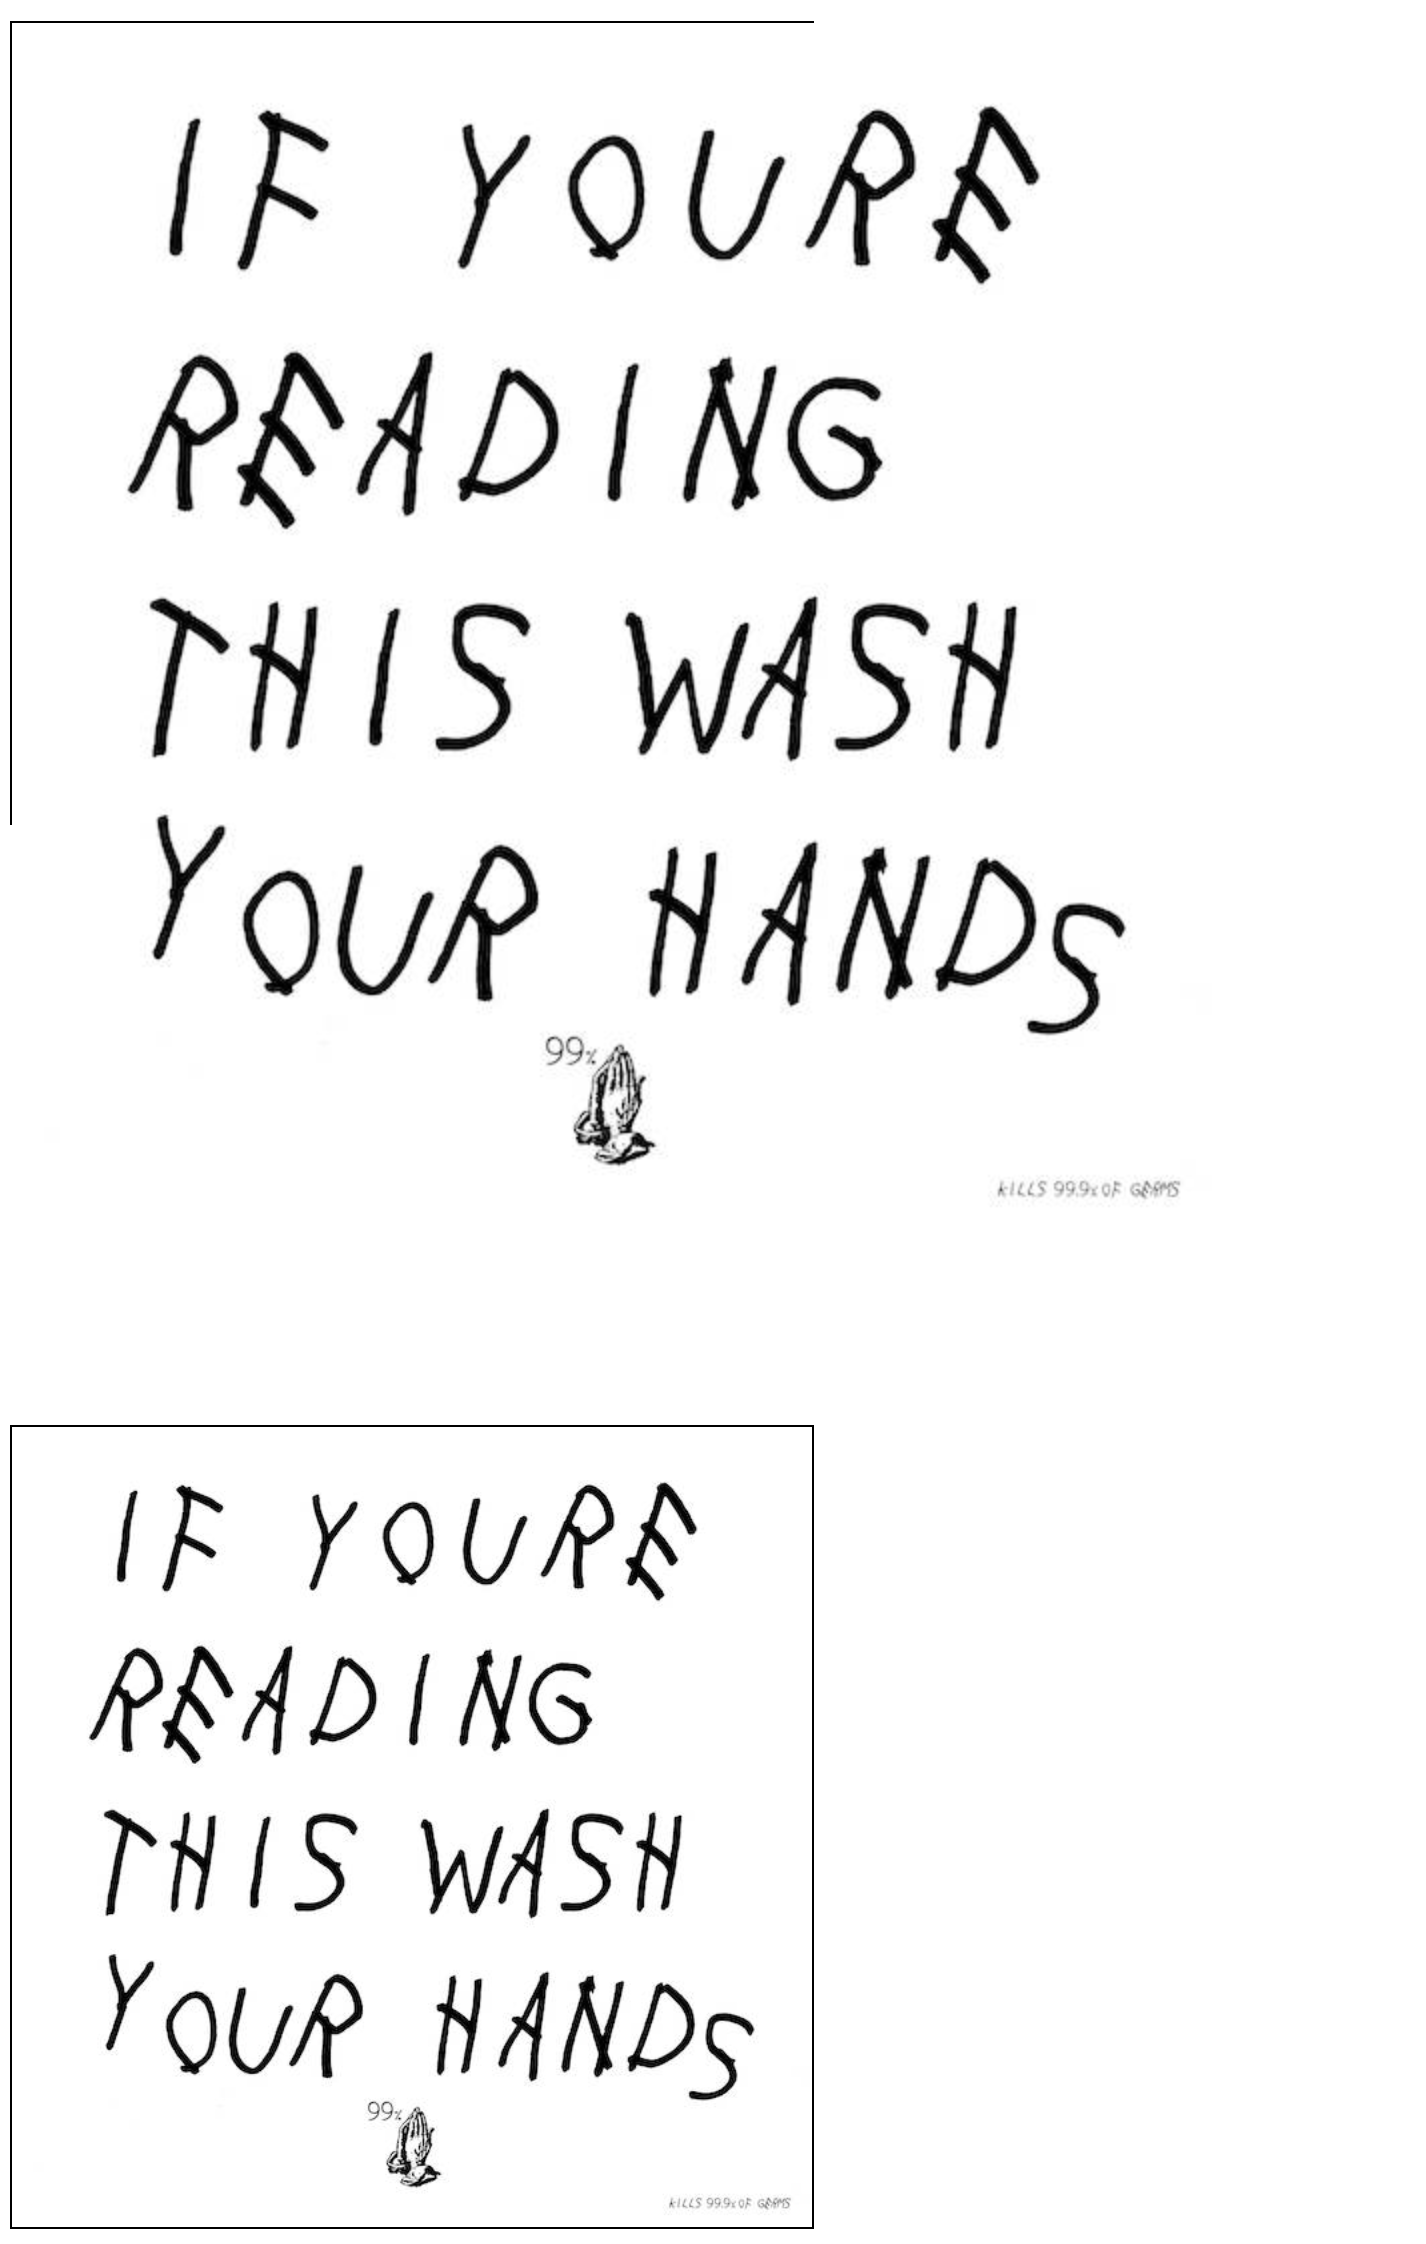 IF YOURE
READING
THIS WASH
YOUR HANDS
99%
KILLS 99.9% OF GERMS
IF YOURE
READING
THIS WASH
YOUR HANDS
99%
KILLS 99.9% OF GERMS